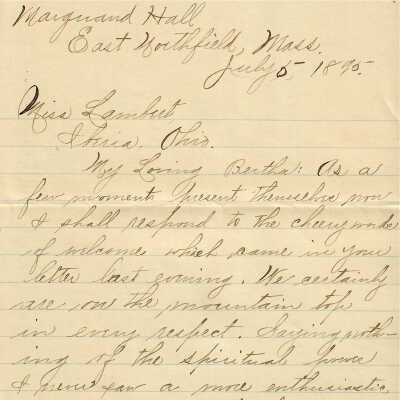 Marquand Hall
East Northfield, Mass.
July 5, 1895.
Miss Lambert,
Iberia, Ohio.
My Loving Bertha: As a
few moments present themselves now
I shall respond to the cheery words
of welcome which came in your
letter last evening. We certainly
are on the mountain top
in every respect. Saying noth-
ing of the spiritual power
I never saw a more enthusiastic